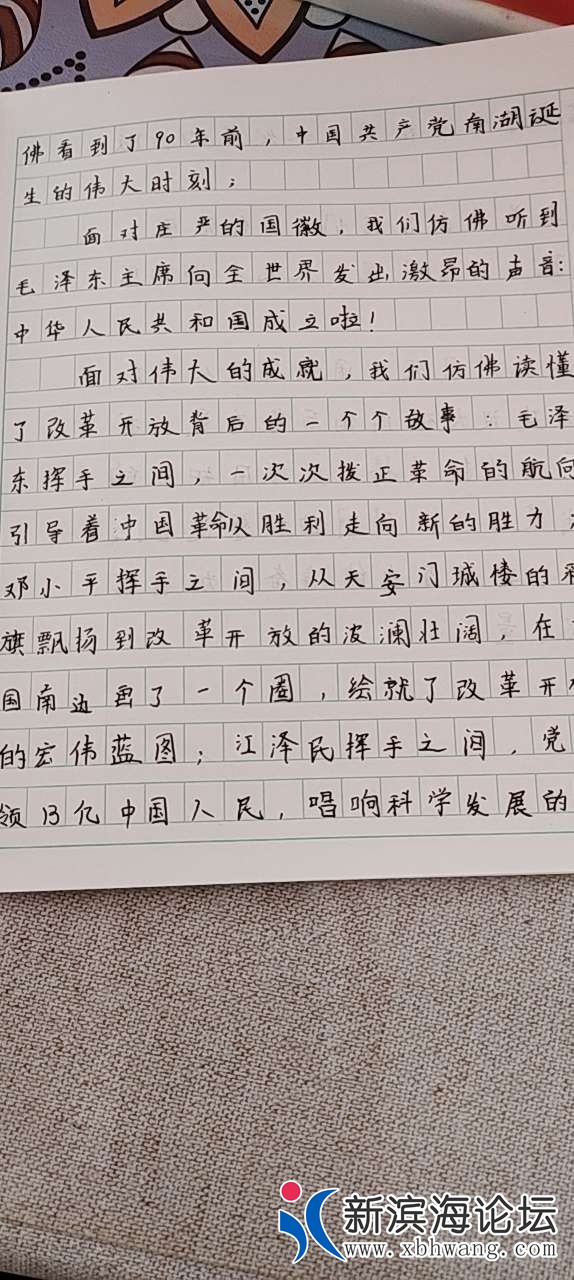 佛看到了90年前，中国共产党南湖诞
生的伟大时刻；
面对庄严的国徽，我们仿佛听到
毛泽东主席向全世界发出激昂的声音：
中华人民共和国成立啦！
面对伟大的成就，我们仿佛读懂
了改革开放背后的一个个故事：毛泽
东挥手之间，一次次拨正革命的航向
引导着中国革命从胜利走向新的胜力
邓小平挥手之间，从天安门城楼的
旗飘扬到改革开放的波澜壮阔，在
国南边画了一个圈，绘就了改革开
的宏伟蓝图；江泽民挥手之间，党
领13亿中国人民，唱响科学发展的
新滨海论坛
www.xbhwang.com